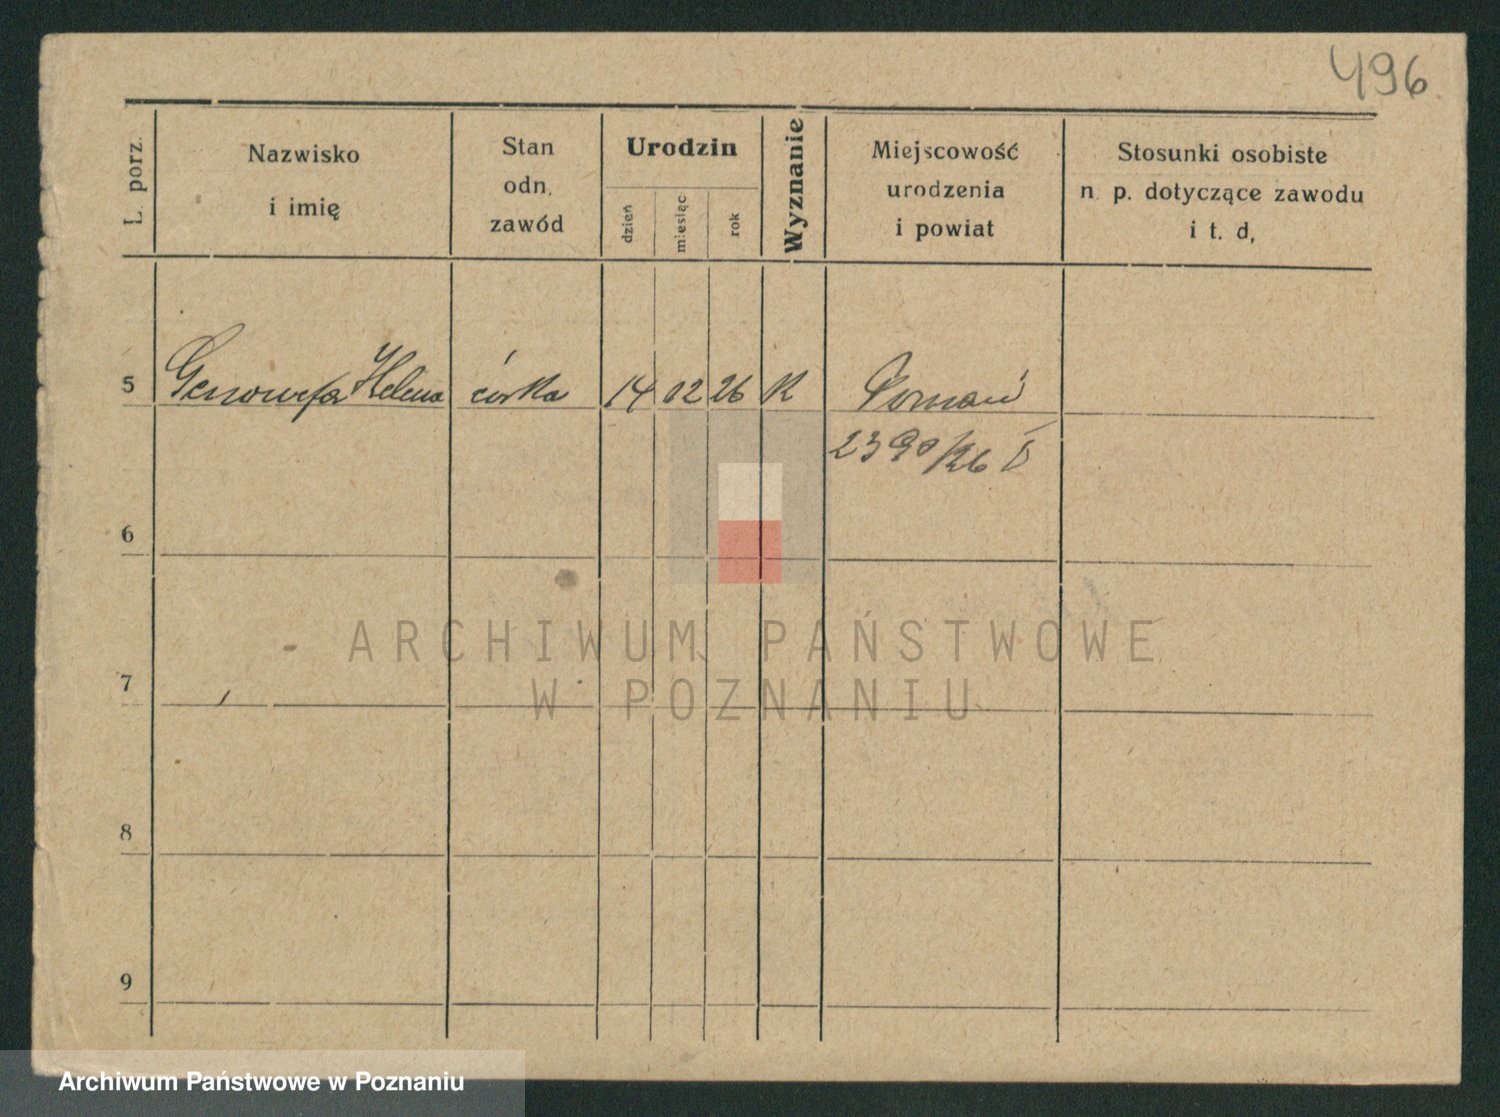 496
L. porz.
Nazwisko
i imię
Stan
odn.
zawód
Urodzin
dzień
miesiąc
rok
Wyznanie
Miejscowość
urodzenia
i powiat
Stosunki osobiste
n. p. dotyczące zawodu
i t. d,
5 Genowefa Helena córka 14 02 26 K Poznań
2390/26 I
6
7
8
9
ARCHIWUM PAŃSTWOWE
W POZNANIU
Archiwum Państwowe w Poznaniu